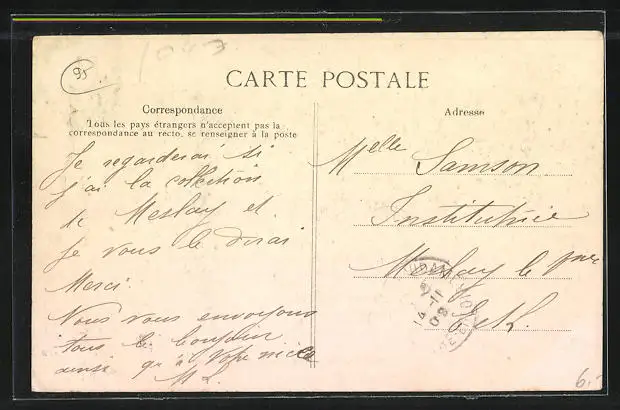 95
1047
CARTE POSTALE
Correspondance
Tous les pays étrangers n'acceptent pas la
correspondance au recto, se renseigner à la poste
Adresse
Je regarderai si
j'ai la collection
de Meslay et
je vous le dirai
Merci.
Nous vous envoyons
tous le
ainsi qu'à votre nièce
M L.
Melle Samson
Institutrice
Meslay le
E & L.
14 -11
08
6,-